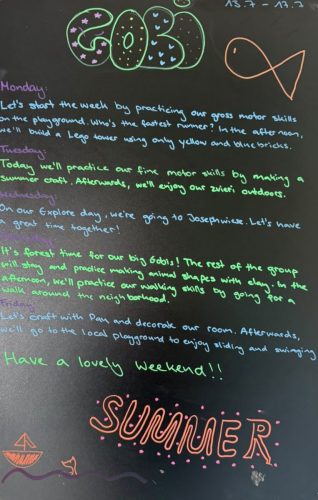 13.7 - 17.7
GOBI
Monday:
Let's start the week by practicing our gross motor skills
on the playground. Who's the fastest runner? In the afternoon,
we'll build a Lego tower using only yellow and blue bricks.
Tuesday:
Today we'll practice our fine motor skills by making a
summer craft. Afterwards, we'll enjoy our zvieri outdoors.
Wednesday
On our Explore day, we're going to Josephwiese. Let's have
a great time together!
It's forest time for our big Gobis! The rest of the group
will stay and practice making animal shapes with clay. In the
afternoon, we'll practice our walking skills by going for a
walk around the neighborhood.
Friday:
Let's craft with Pam and decorate our room. Afterwards,
we'll go to the local playground to enjoy sliding and swinging
Have a lovely weekend!!
SUMMER